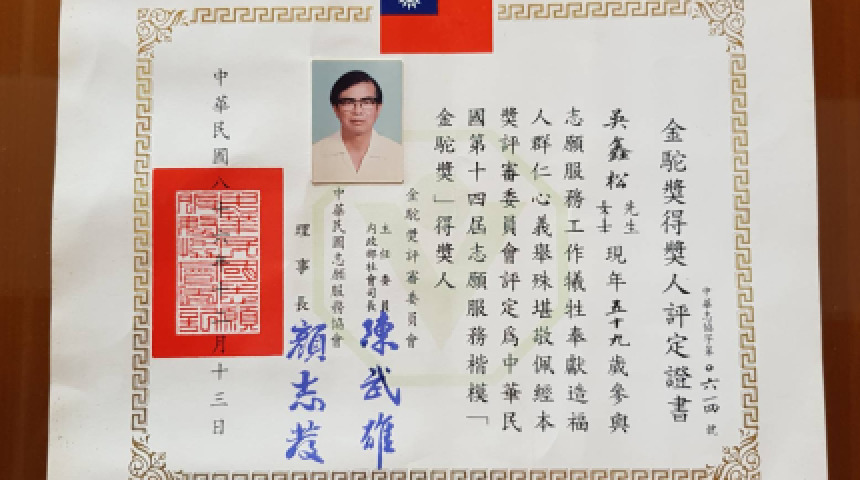 金駝獎得獎人評定證書
中華志協字第0六一四號
吳鑫松先生女士現年五十九歲參與
志願服務工作犧牲奉獻造福
人群仁心義舉殊堪敬佩經本
獎評審委員會評定為中華民
國第十四屆志願服務楷模「
金駝獎」得獎人
金駝獎評審委員會
主任委員
內政部社會司長
陳武雄
中華民國志願服務協會
理事長
顏志發
中華民國八十六年十月十三日